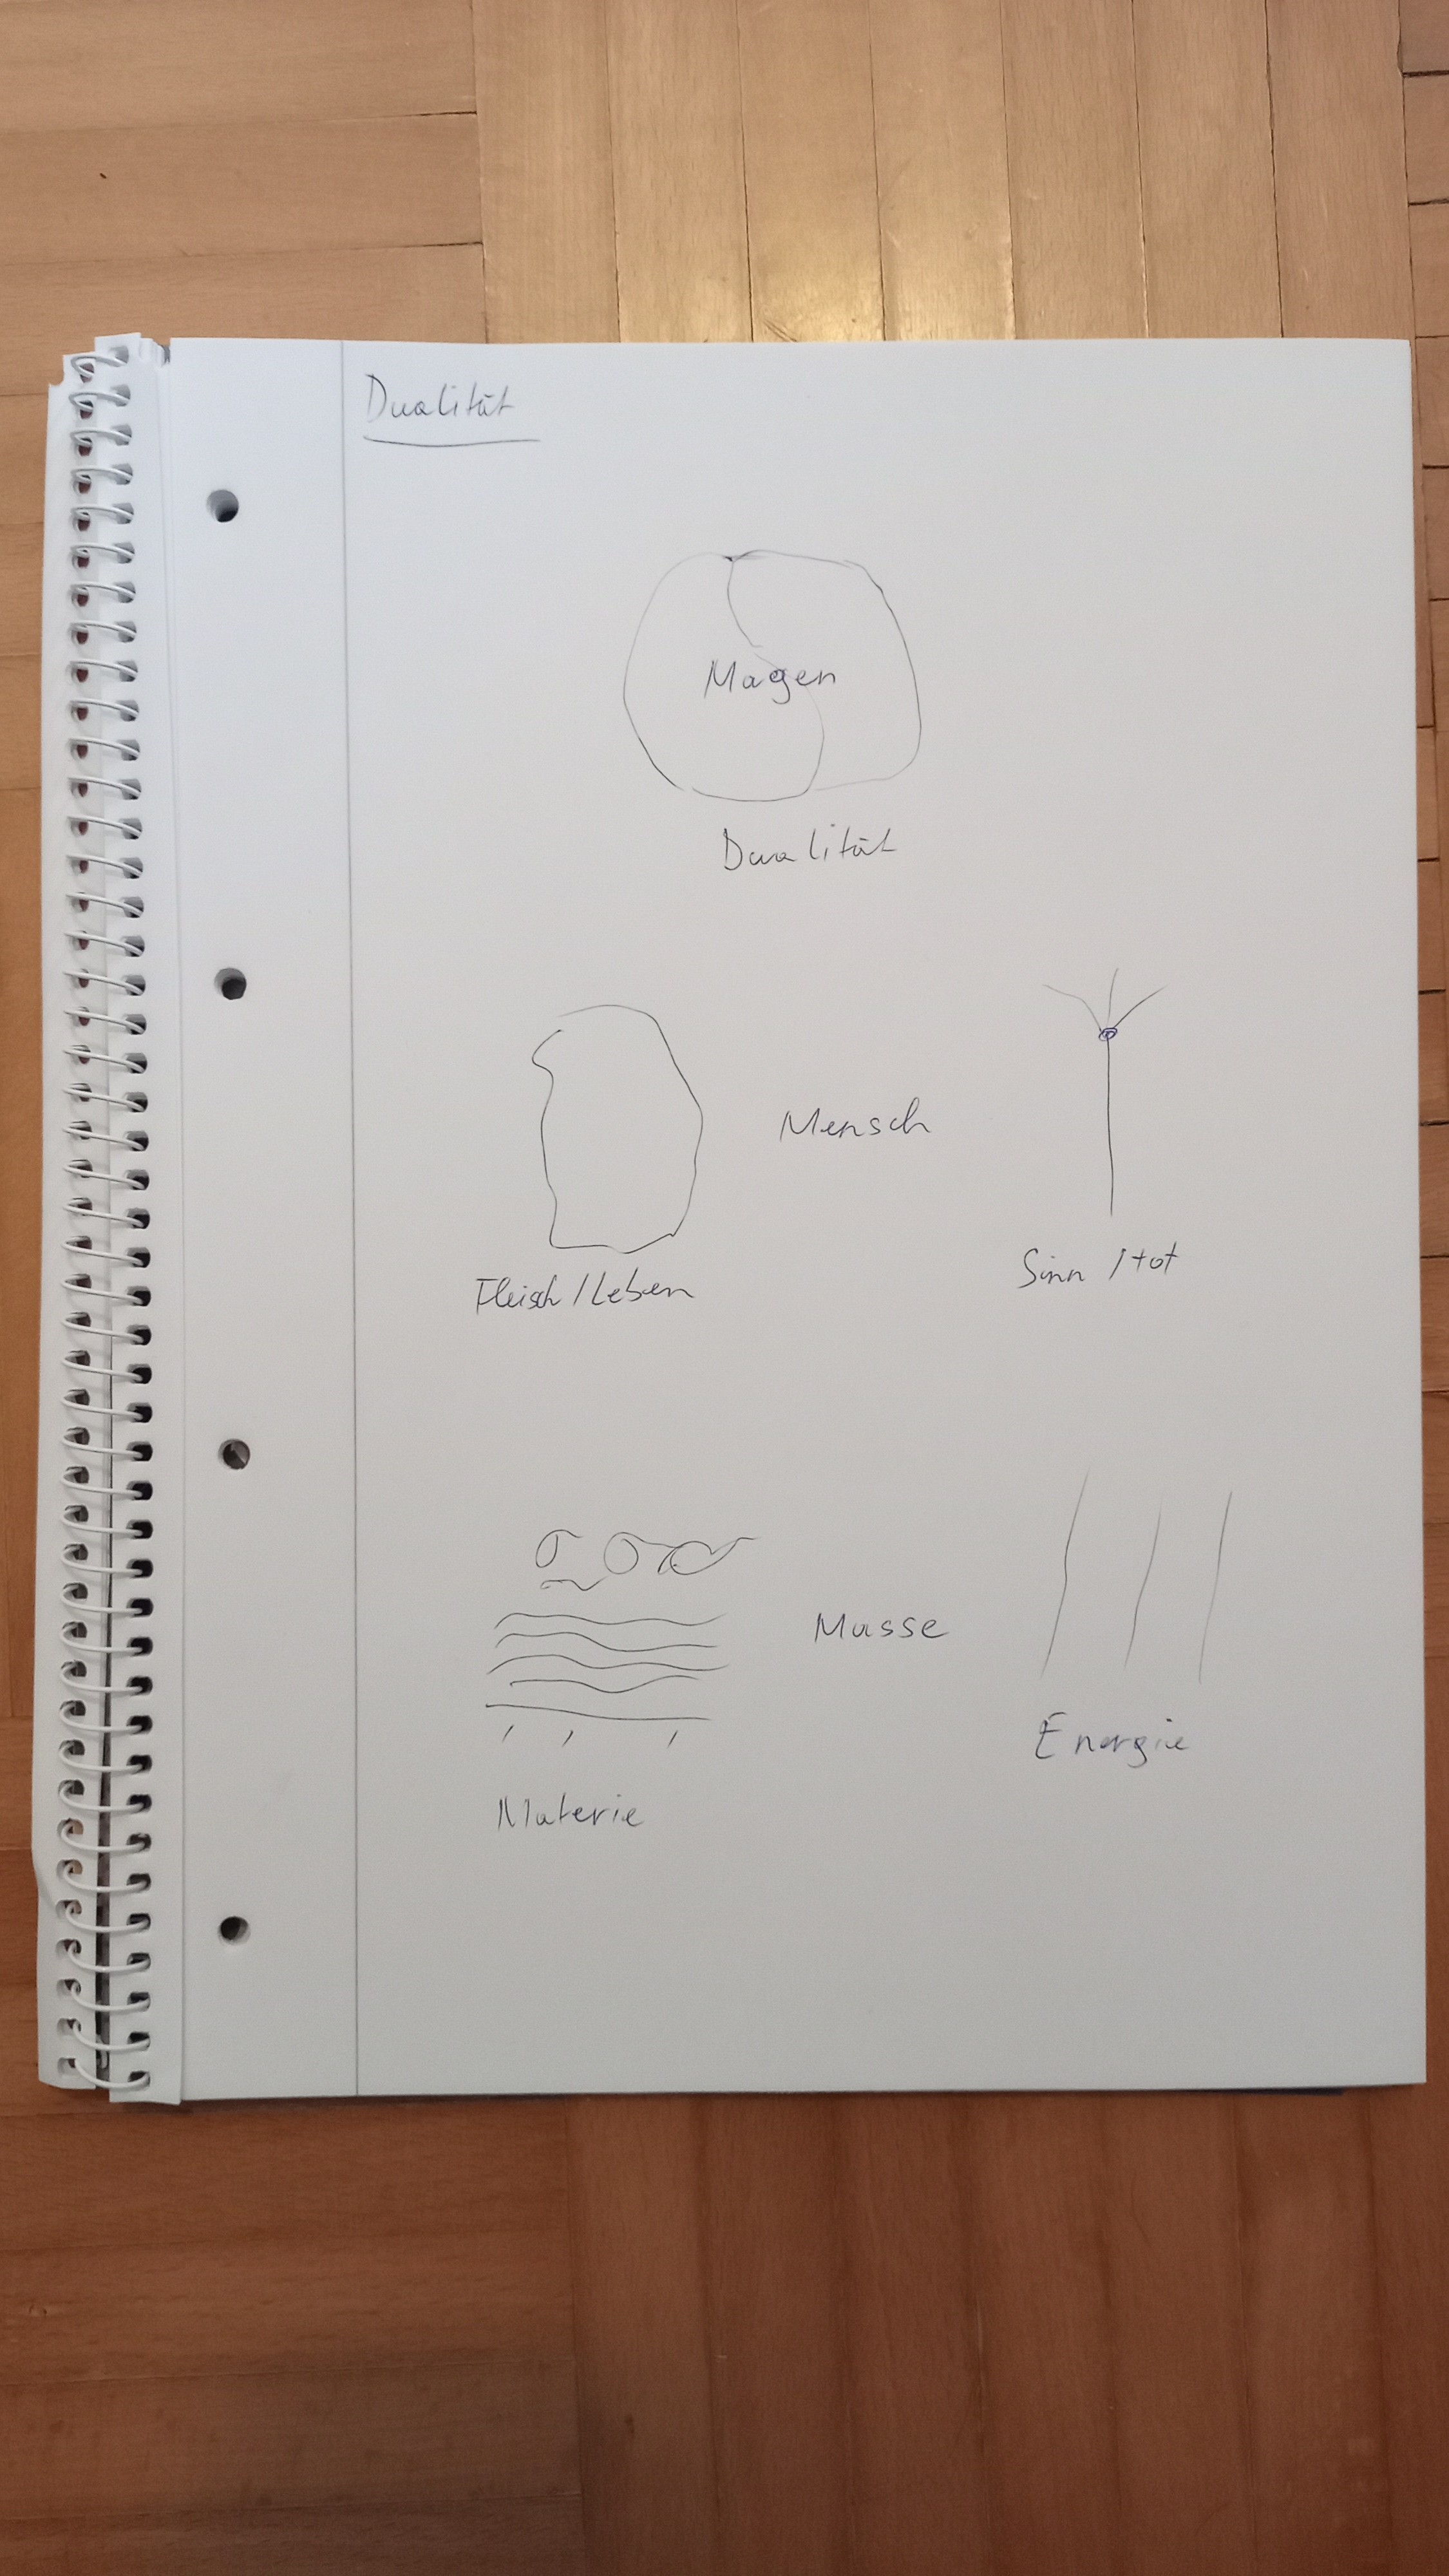 Dualität
Magen
Dualität
Mensch
Fleisch / Leben
Sinn / tot
Masse
Materie
Energie